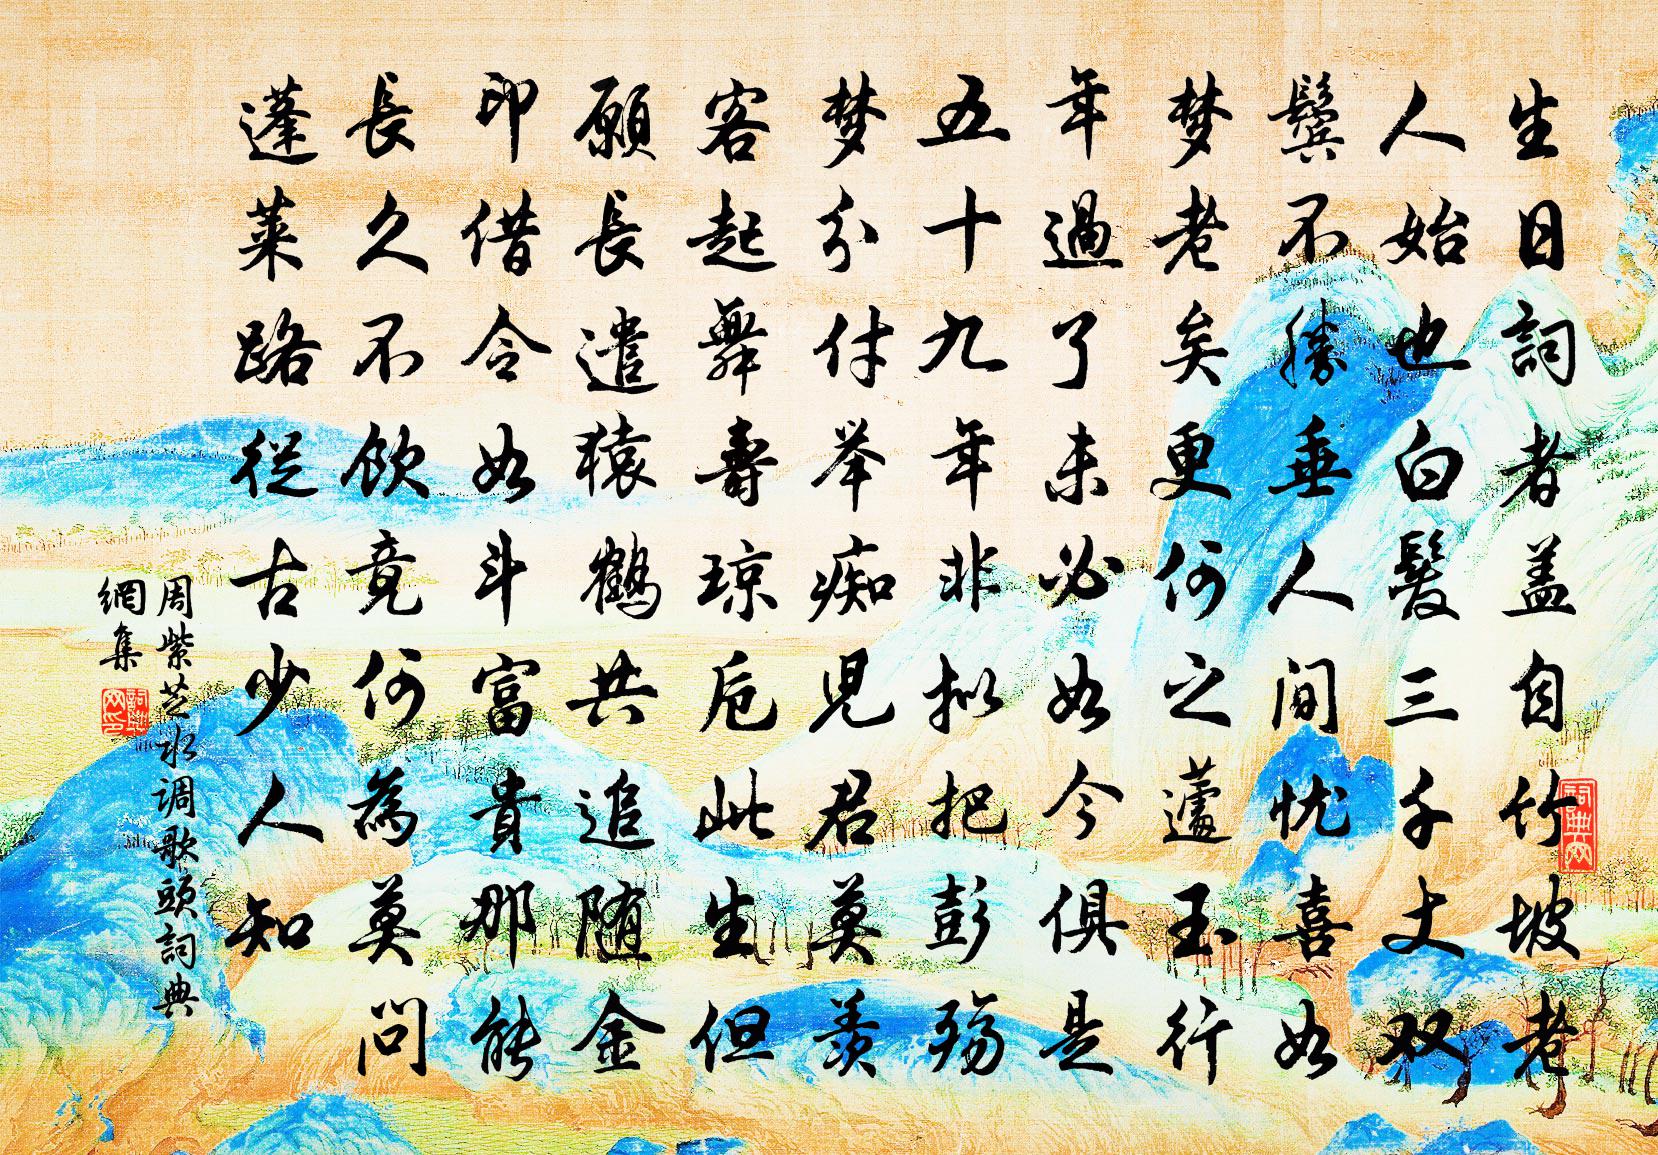 生日詞者盖自竹坡老
人始也白髮三千丈双
鬓不勝垂人间忧喜如
梦老矣更何之蘧玉行
年過了未必如今俱是
五十九年非拟把彭殤
梦分付举痴児君莫羡
客起舞壽琼卮此生但
願長遣猿鶴共追随金
印借令如斗富貴那能
長久不飲竟何為莫问
蓬萊路從古少人知
周紫芝水调歌頭詞典
網集